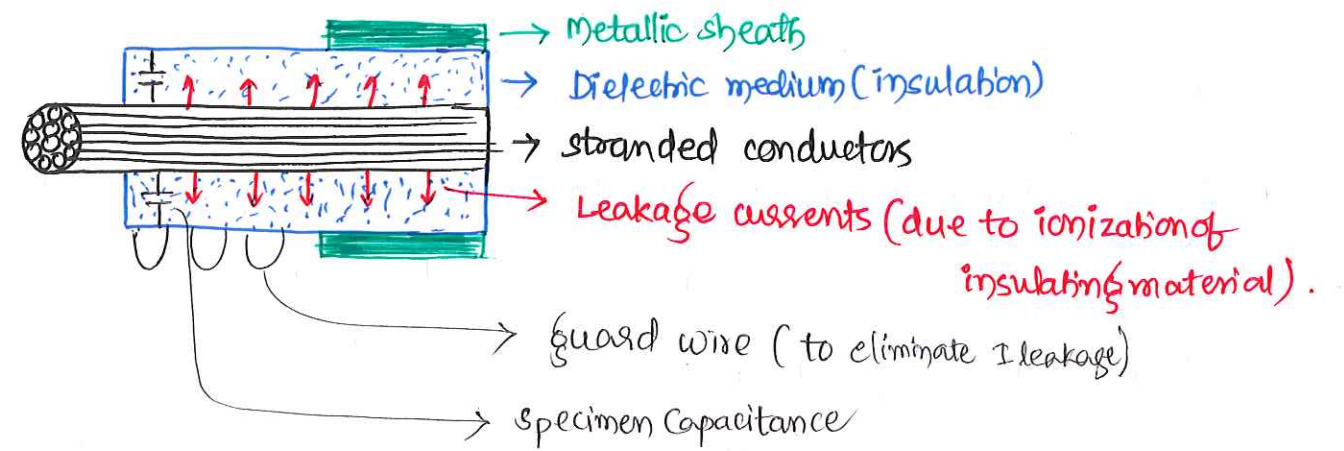 Metallic sheath
Dielectric medium (insulation)
stranded conductors
Leakage currents (due to ionization of
insulating material).
guard wire (to eliminate I leakage)
specimen Capacitance